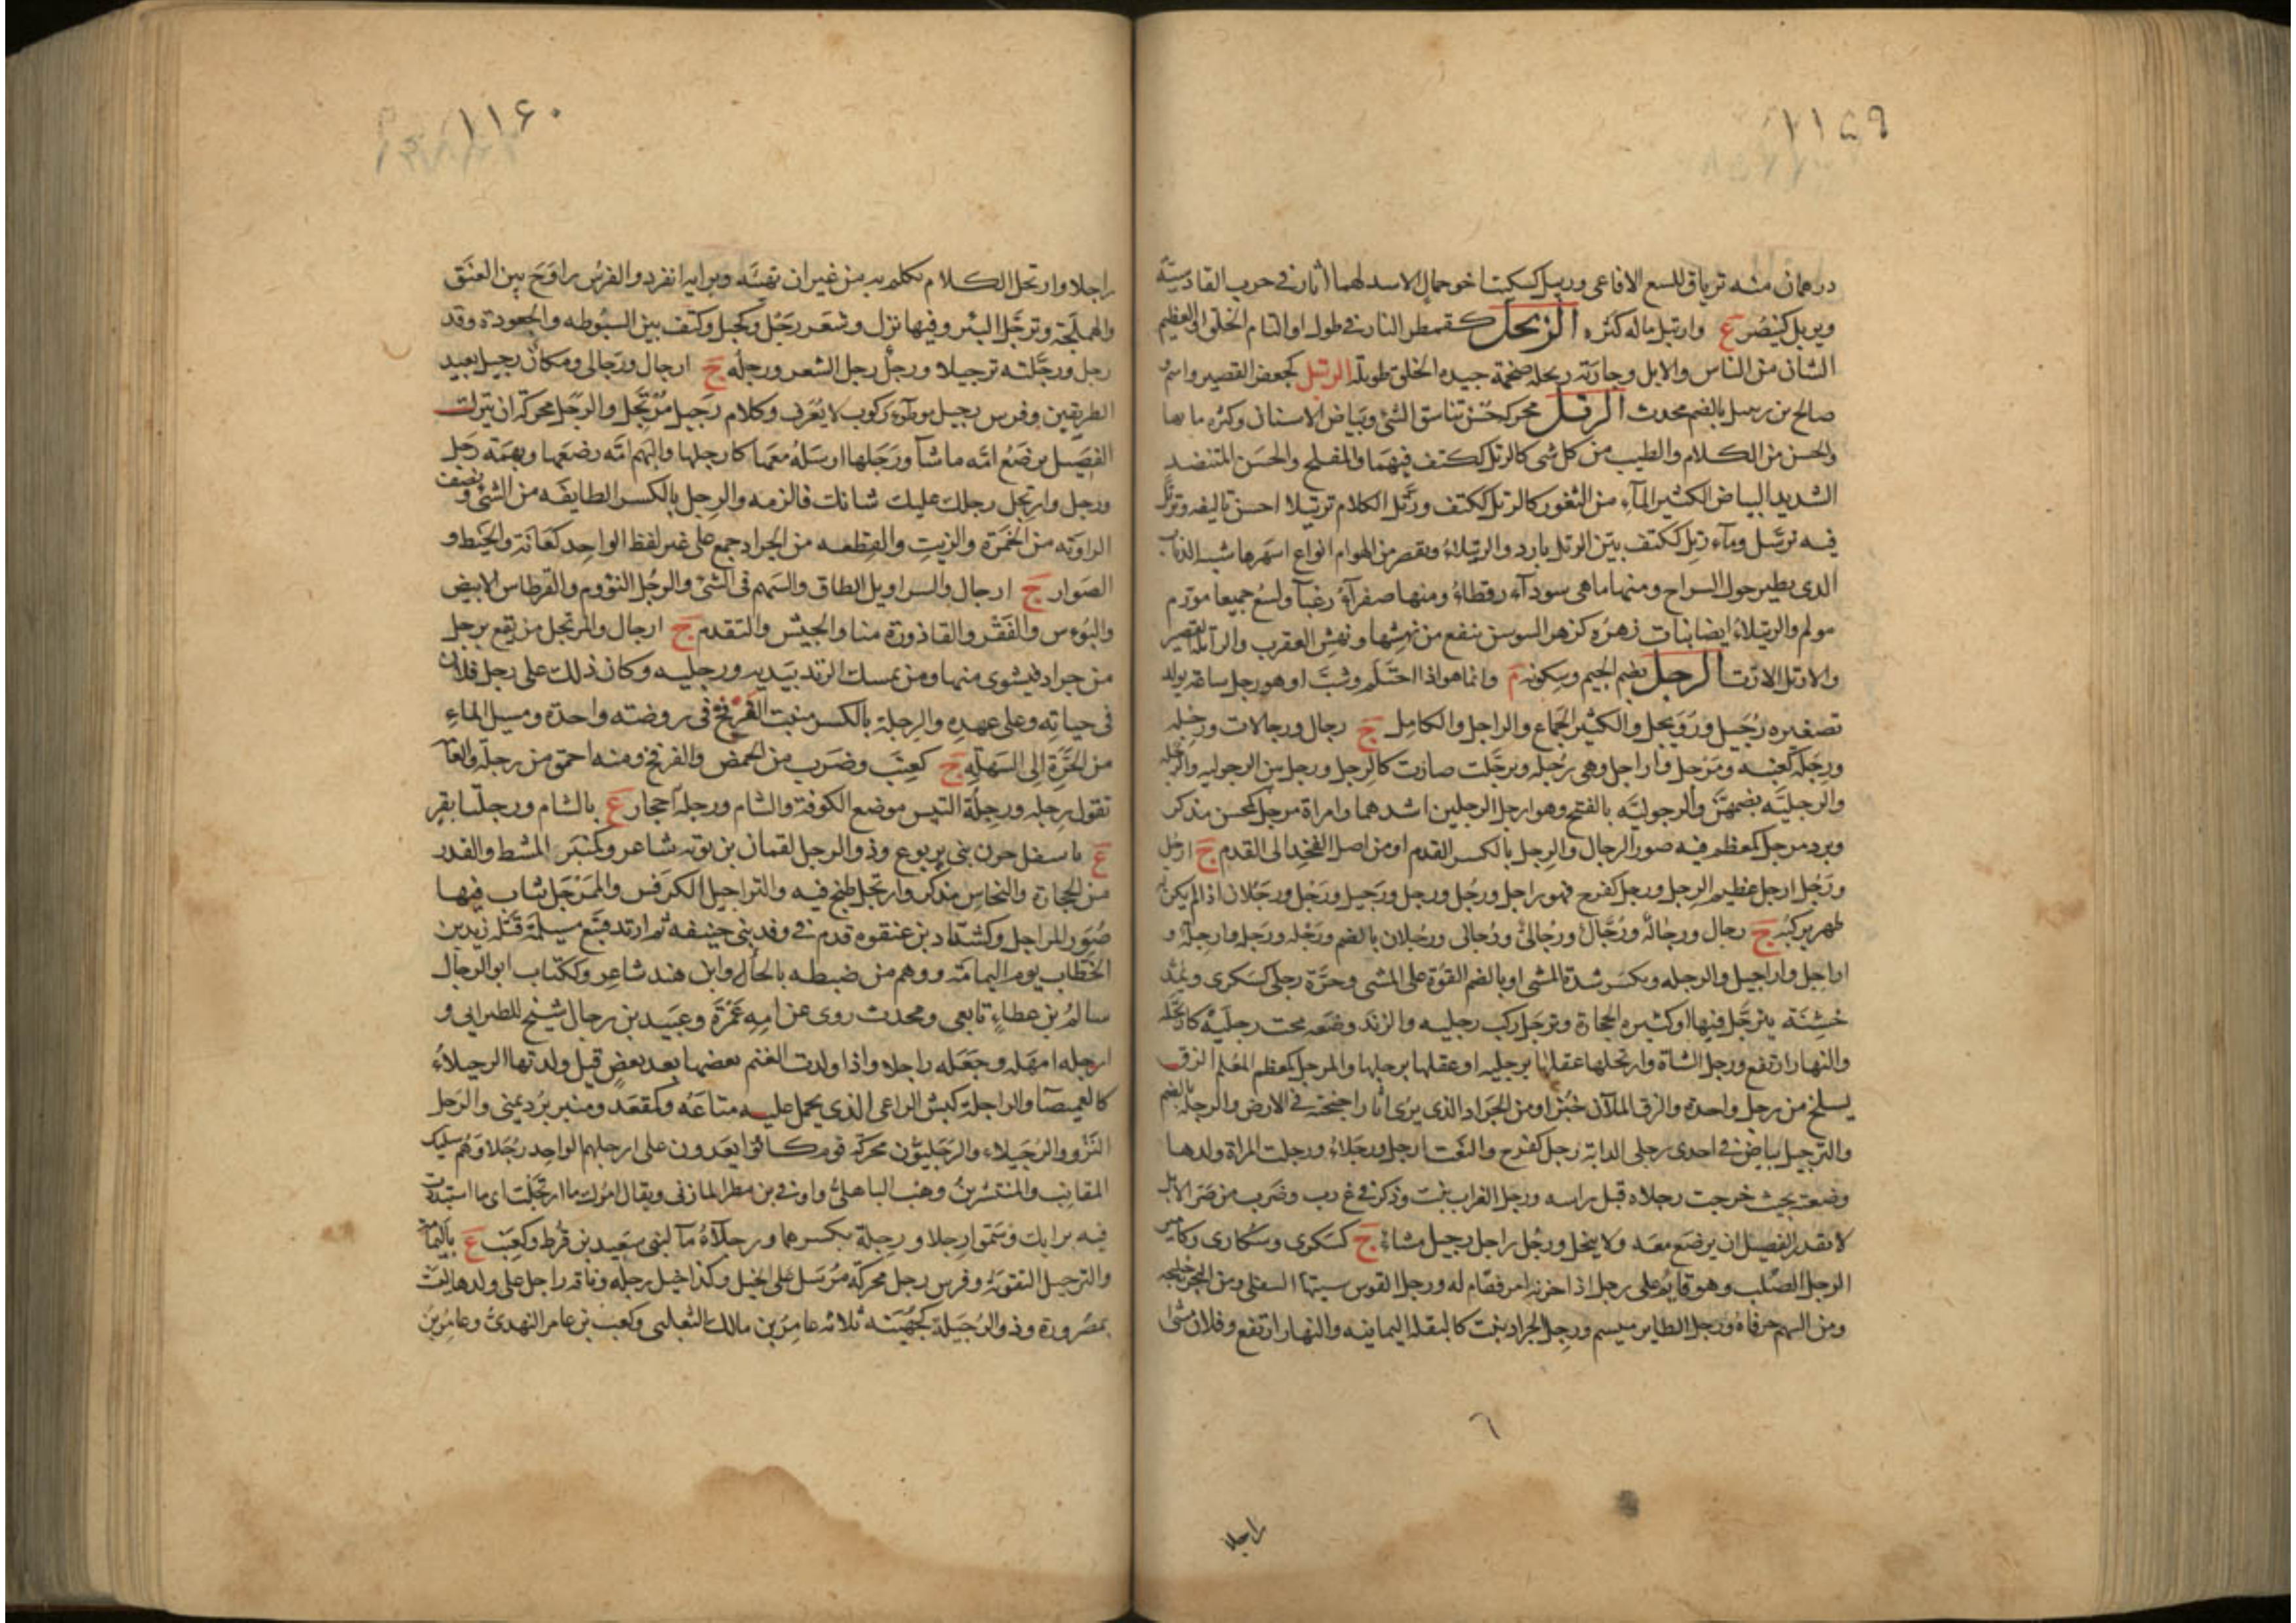 ١١٥٩
درهمان منه ترياق للسع الافاعى وربيل كسكيت اخو حمال الاسد لهما آثار فى حرب القادسية
ويربل كينصر ع وارتبل ماله كثر الربحل كقمطر التار فى طول او التام الخلق او العظيم
الشان من الناس والابل وجارية ربحلة ضخمة جيدة الخلق طويلة الرتبل كجعفر القصير واسم
صالح بن رتبيل بالضم محدث الرتل محركة حسن تناسق الشئ وبياض الاسنان وكثرة مايها
والحسن من الكلام والطيب من كل شى كالرتل ككتف فيهما والمفلج والحسن المتنضد
الشديد البياض الكثير المآء من الثغور كالرتل ككتف ورتل الكلام ترتيلا احسن تاليفه وترتل
فيه ترسل ومآء رتل ككتف بين الرتل بارد والرتيلاء ويقصر من الهوام انواع اشهرها شبه الذباب
الذى يطير حول السراج ومنها ما هى سودآء رقطاء ومنها صفرآء زغبآ ولسع جميعها مورم
مولم والرتيلاء ايضا نبات زهره كزهر السوسن ينفع من نهشها ونهش العقرب والراتلة القصير
والارتل الارت الرجل بضم الجيم وسكونه م وانما هو اذا احتلم وشب او هو رجل ساعة يولد
تصغيره رجيل ورويجل والكثير الجماع والراجل والكامل ج رجال ورجالات ورجلة
ورجلة كعنبة ومرجل واراجل وهى رجلة وترجلت صارت كالرجل ورجل بين الرجولية والرجلة
والرجلية بضمهن والرجولية بالفتح وهو ارجل الرجلين اشدهما وامراة مرجل كمحسن مذكر
وبرد مرجل كمعظم فيه صور الرجال والرجل بالكسر القدم او من اصل الفخذ الى القدم ج ارجل
ورجل ارجل عظيم الرجل ورجل كفرح فهو راجل ورجل ورجل ورجيل ورجل ورجلان اذا لم يكن له
ظهر يركبه ج رجال ورجالة ورجال ورجالى ورجالى ورجلان بالضم ورجلة ورجلة وارجلة و
اراجل واراجيل والرجلة ويكسر شدة المشى او بالضم القوة على المشى وحرة رجلى كسكرى ويمد
خشنة يترجل فيها او كثيرة الحجارة وترجل ركب رجليه والزند وضعه تحت رجليه كارتجله
والنهار ارتفع ورجل الشاة وارتجلها عقلها برجليه او عقلها برجلها والمرجل كمعظم المعلم والزق
يسلخ من رجل واحدة والزق الملآن خمرا ومن الجراد الذى يرى آثار اجنحته فى الارض والرجلة بالضم
والترجيل بياض فى احدى رجلى الدابة رجل كفرح والنعت ارجل ورجلاء ورجلت المراة ولدها
وضعته بحيث خرجت رجلاه قبل راسه ورجل الغراب نبت وذكر فى غ ر ب وضرب من صر الابل
لا يقدر الفصيل ان يرضع معه ولا ينحل ورجل راجل رجيل مشاء ج كسكرى وسكارى وكامير
الرجل الصلب وهو قايم على رجل اذا حزنه امر فقام له ورجل القوس سيتها السفلى ومن البحر خليجه
ومن السهم حرفاه ورجل الطاير ميسم ورجل الجراد نبت كالبقلة اليمانية والنهار ارتفع وفلان مشى
٦
راجلا
١١۶٠
راجلا وارتجل الكلام تكلم به من غير ان يهيئه وبرايه انفرد والفرس راوح بين العنق
والهملجة وترجل البئر وفيها نزل وشعر رجل وكجبل وكتف بين السبوطة والجعودة وقد
رجل ورجلته ترجيلا ورجل رجل الشعر ورجله ج ارجال ورجالى ومكان رجيل بعيد
الطريقين وفرس رجيل موطوء ركوب لا يعرف وكلام رجيل مرتجل والرجل محركة ان يترك
الفصيل يرضع امه ما شآ ورجلها ارسله معها كارجلها والبهم امه رضعها وبهمة رجل
ورجل وارتجل رجلك عليك شانك فالزمه والرجل بالكسر الطايفة من الشئ ونصف
الراوية من الخمرة والزيت والقطعة من الجراد جمع على غير لفظ الواحد كعانة والخيط و
الصوار ج ارجال والسراويل الطاق والسهم فى الشئ والرجل النؤوم والقرطاس الابيض
والبؤس والفقر والقاذورة منا والجيش والتقدم ج ارجال والمرتجل من يقع برجل
من جراد فيشوى منها ومن يمسك الزند بيديه ورجليه وكان ذلك على رجل فلان
فى حياته وعلى عهده والرجلة بالكسر منبت العرفج فى روضة واحدة ومسيل الماء
من الحرة الى السهلة ج كعنب وضرب من الحمض والفرفخ ومنه احمق من رجلة والعامة
تقول رجله ورجلة التيس موضع الكوفة والشام ورجلة احجار ع بالشام ورجلتا بقر
ع باسفل حزن بنى يربوع وذو الرجل لقمان بن توبة شاعر وكمنبر المشط والقدر
من الحجارة والنحاس مذكر وارتجل طبخ فيه والتراجيل الكرفس والممرجل ثياب فيها
صور المراجل وكشداد بن عنقوة قدم فى وفد بنى حنيفة ثم ارتد فتبع مسيلمة قتله زيد بن
الخطاب يوم اليمامة ووهم من ضبطه بالحاء وابن هند شاعر وككتاب ابو الرجال
سالم بن عطاء تابعى ومحدث روى عن امه عمرة وعبيد بن رجال شيخ للطبرانى و
ارجله امهله وجعله راجلا واذا ولدت الغنم بعضها بعد بعض قيل ولدتها الرجيلاء
كالغميصآ والراجلة كبش الراعى الذى يحمل عليه متاعه وكمقعد ومنبر برد يمنى والرجل
النزو والرجيلاء والرجليون محركة قوم كانوا يعدون على ارجلهم الواحد رجلى وهم سليك
المقانب والمنتشر بن وهب الباهلى واوفى بن مطر المازنى ويقال امرك ما ارتجلت اى ما استبددت
فيه برايك وسموا رجلا ورجلة بكسرهما ورجلاء مآ لبنى سعيد بن قرط وكعنب ع باليمامة
والترجيل التقوية وفرس رجل محركة مرسل على الخيل وكذا خيل رجلة وناقة راجل على ولدها ليست
بمصرورة وذو الرجيلة كجهينة ثلاثة عامر بن مالك الثعلبى وكعب بن عامر النهدى وعامر بن